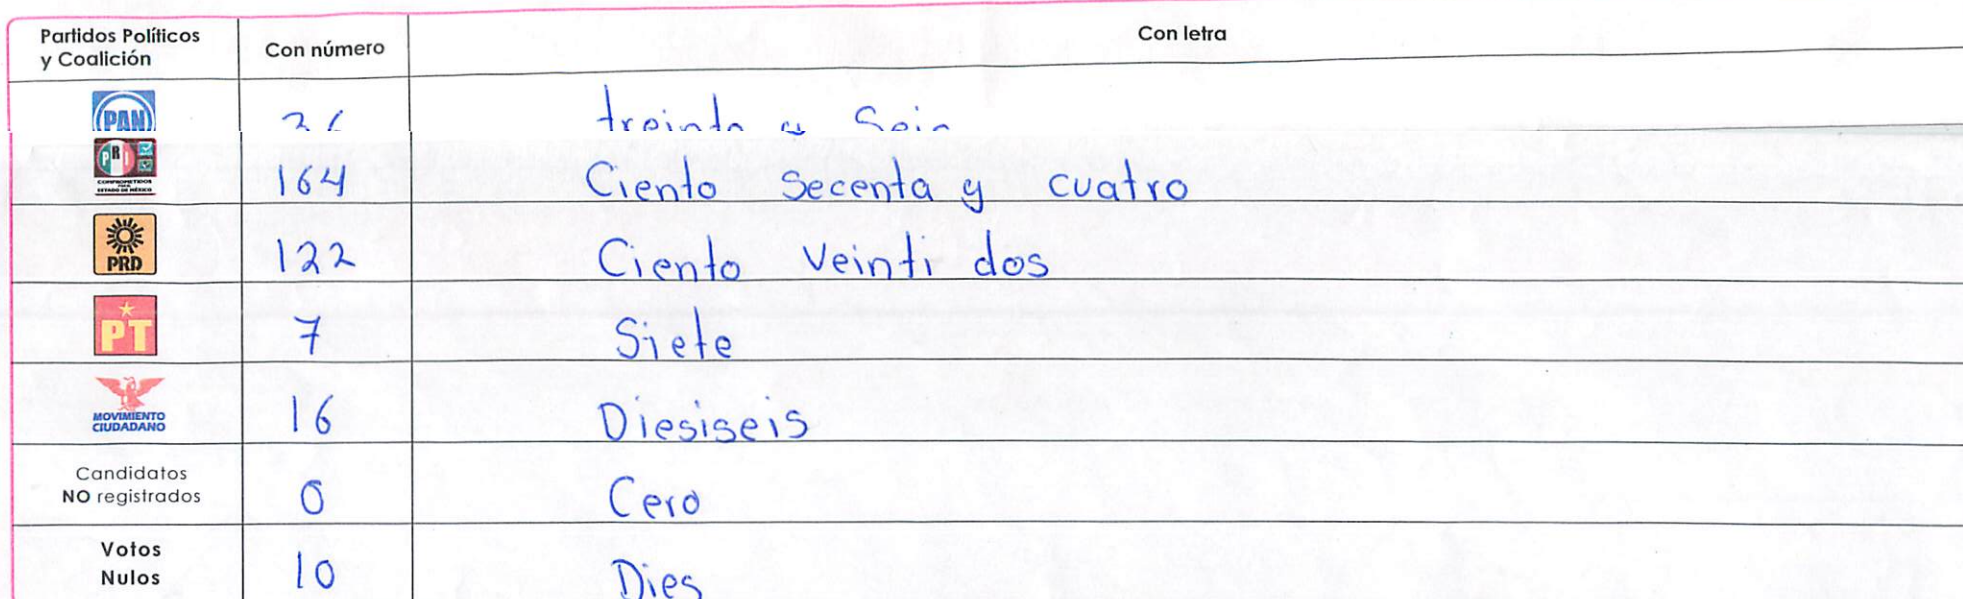 Partidos Políticos y Coalición Con número Con letra
PAN 36 treinta y Seis
PRI COMPROMETIDOS ESTADO DE MÉXICO 164 Ciento Secenta y cuatro
PRD 122 Ciento Veinti dos
PT 7 Siete
MOVIMIENTO CIUDADANO 16 Diesiseis
Candidatos NO registrados 0 Cero
Votos Nulos 10 Dies